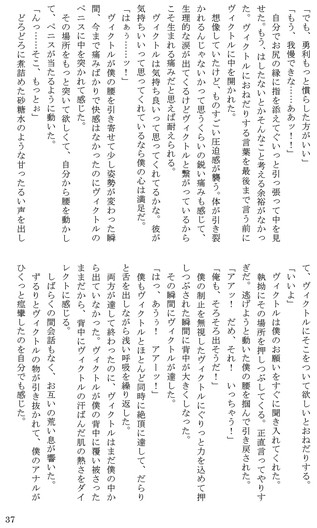 「でも、勇利もっと慣らした方がいい」
「もう、我慢できな……ああッー！」
自分でお尻の縁に指を添えてぐいっと引っ張って中を見
せた。もう、はしたないとかそんなこと考える余裕がなかっ
た。ヴィクトルにおねだりする言葉を最後まで言う前に
ヴィクトルに中を開かれた。
想像していたけど、ものすごい圧迫感が襲う。体が引き裂
かれるんじゃないかって思うくらいの鋭い痛みも感じて、
生理的な涙が出てくるけどヴィクトルと繋がっているから
こそ生まれる痛みだと思えば耐えられる。
ヴィクトルは気持ち良いって思ってくれてるかな。彼が
気持ちいいって思ってくれているなら僕の心は満足だ。
「はぁぅ……ッ！」
ヴィクトルが僕の腰を引き寄せて少し姿勢が変わった瞬
間、今まで痛みばかりで快感はなかったのにヴィクトルの
ペニスに中を突かれて感じた。
その場所をもっと突いて欲しくて、自分から腰を動かし
て、ペニスが当たるように動いた。
「んっ……そこ、もっとぉ」
どろどろに煮詰めた砂糖水のような甘ったるい声を出し
て、ヴィクトルにそこをついて欲しいとおねだりする。
「いいよ」
ヴィクトルは僕のお願いをすぐに聞き入れてくれた。
執拗にその場所を押しつぶしてくる。正直言ってやりす
ぎだ。逃げようと動いた僕の腰を掴んで引き戻された。
「アアッ！　だめ、それ！　いっちゃう！」
「俺も、そろそろ出そうだ！」
僕の制止を無視したヴィクトルにぐりっと力を込めて押
しつぶされた瞬間に背中が大きくしなった。
その瞬間にヴィクトルが達した。
「はっ、あうぅ！　アアーッ！」
僕もヴィクトルとほとんど同時に絶頂に達して、だらり
と舌を出しながら浅い呼吸を繰り返した。
両方が達して終わったのに、ヴィクトルはまだ僕の中か
ら出ていなかった。ヴィクトルが僕の背中に覆い被さった
ままだから、背中にヴィクトルの汗ばんだ肌の熱さをダイ
レクトに感じる。
しばらくの間会話もなく、お互いの荒い息が響いた。
ずるりとヴィクトルの物が引き抜かれて、僕のアナルが
ひくっと痙攣したのを自分でも感じた。
37